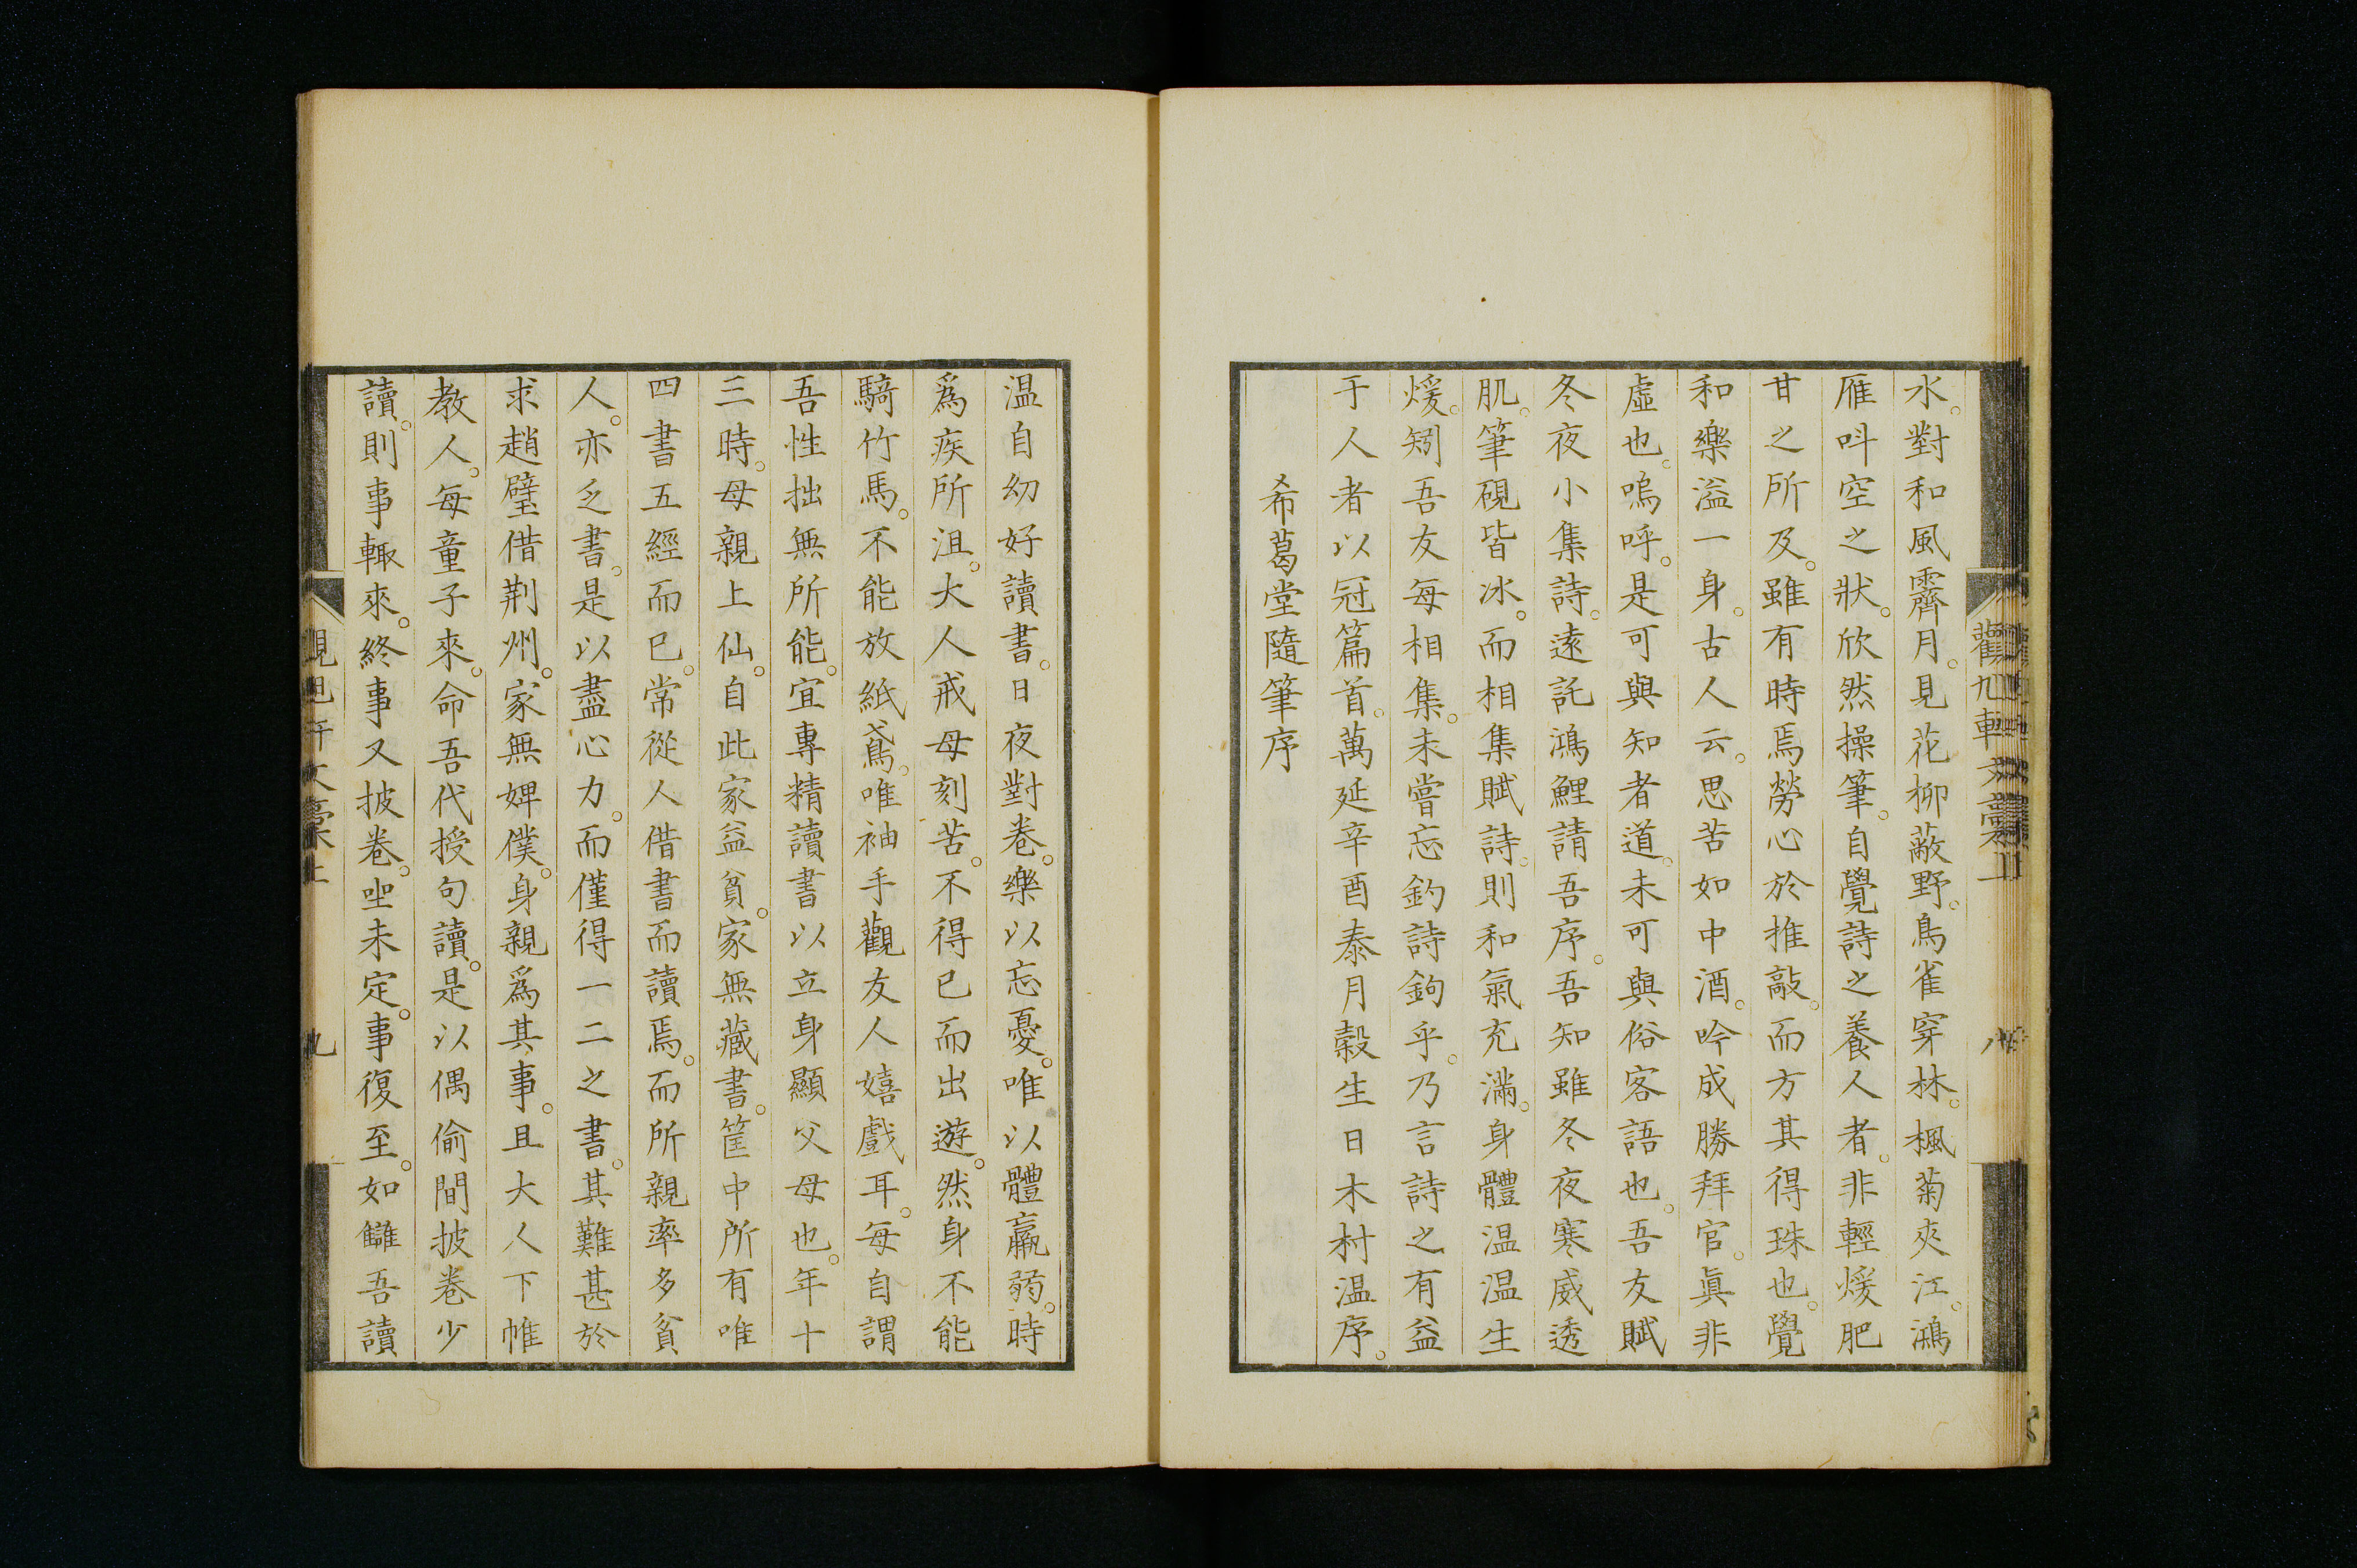 水。對和風霽月。見花柳蔽野。鳥雀穿林。楓菊夾江。鴻
雁叫空之狀。欣然操筆。自覺詩之養人者。非輕煖肥
甘之所及。雖有時焉勞心於推敲。而方其得珠也。覺
和樂溢一身。古人云。思苦如中酒。吟成勝拜官。眞非
虛也。嗚呼。是可與知者道。未可與俗客語也。吾友賦
冬夜小集詩。遠託鴻鯉請吾序。吾知雖冬夜寒威透
肌。筆硯皆冰。而相集賦詩。則和氣充滿。身體温温生
煖。矧吾友每相集。未嘗忘釣詩鉤乎。乃言詩之有益
于人者以冠篇首。萬延辛酉泰月穀生日木村温序。
希葛堂隨筆序
温自幼好讀書。日夜對卷。樂以忘憂。唯以體羸弱。時
爲疾所沮。大人戒毋刻苦。不得已而出遊。然身不能
騎竹馬。不能放紙鳶。唯袖手觀友人嬉戲耳。每自謂
吾性拙無所能。宜專精讀書以立身顯父母也。年十
三時。母親上仙。自此家益貧。家無藏書。筐中所有唯
四書五經而已。常從人借書而讀焉。而所親率多貧
人。亦乏書。是以盡心力。而僅得一二之書。其難甚於
求趙璧借荆州。家無婢僕。身親爲其事。且大人下帷
教人。每童子來。命吾代授句讀。是以偶偷間披卷少
讀。則事輙來。終事又披卷。坐未定。事復至。如讎吾讀